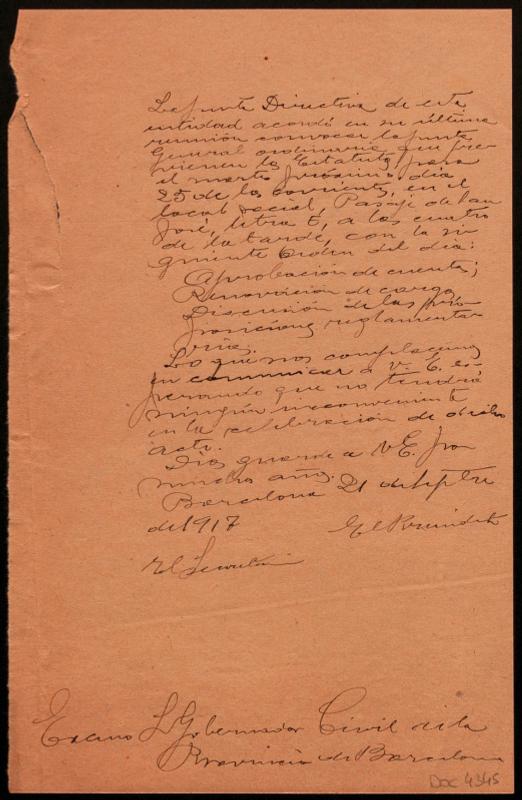 La Junta Directiva de esta
entidad acordó en su última
reunión convocar la Junta
General ordinaria que pre-
vienen los Estatutos para
el martes próximo día
25 de los corrientes, en el
local social, Pasaje de San
José, letra E, a las cuatro
de la tarde, con la si-
guiente Orden del día:
Aprobación de cuentas;
Renovación de cargos
Discusión de las pro-
posiciones reglamenta-
rias.
Lo que nos complacemos
en comunicar a V. E. es-
perando que no tendrá
ningún inconveniente
en la celebración de dicho
acto.
Dios guarde a V.E. por
muchos años.
Barcelona 21 de Septbre
de 1917
El Presidente
El Secretario
Excmo Sr Gobernador Civil de la
Provincia de Barcelona
DOC 4345